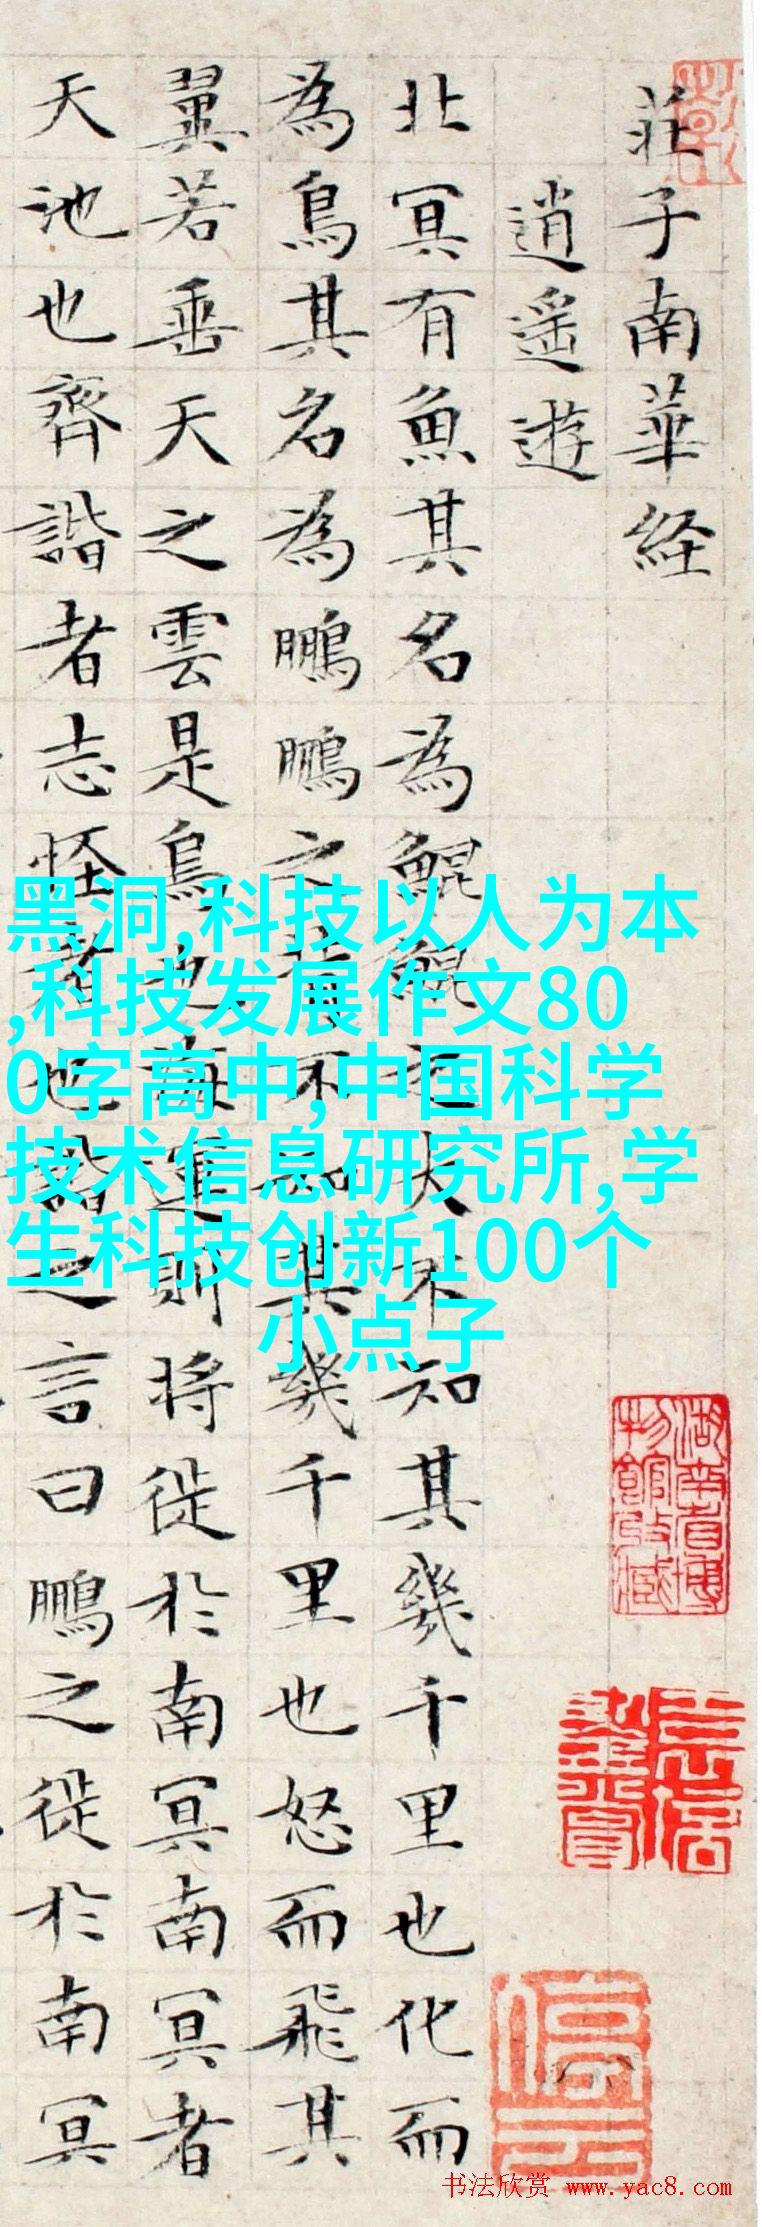 莊子南華経
逍遙遊
北冥有魚其名為鯤鯤之大不知其幾千里也化而
為鳥其名為鵬鵬之背不知其幾千里也怒而飛其
翼若垂天之雲是鳥也海運則将徙於南冥南冥者
天池也齊諧者志怪者也諧之言曰鵬之徙於南冥
黑洞,科技以人为本
,科技发展作文80
0字高中,中国科学
技术信息研究所,学
生科技创新100个
小点子
湖南省博
物館收藏
书法欣赏 www.yac8.com